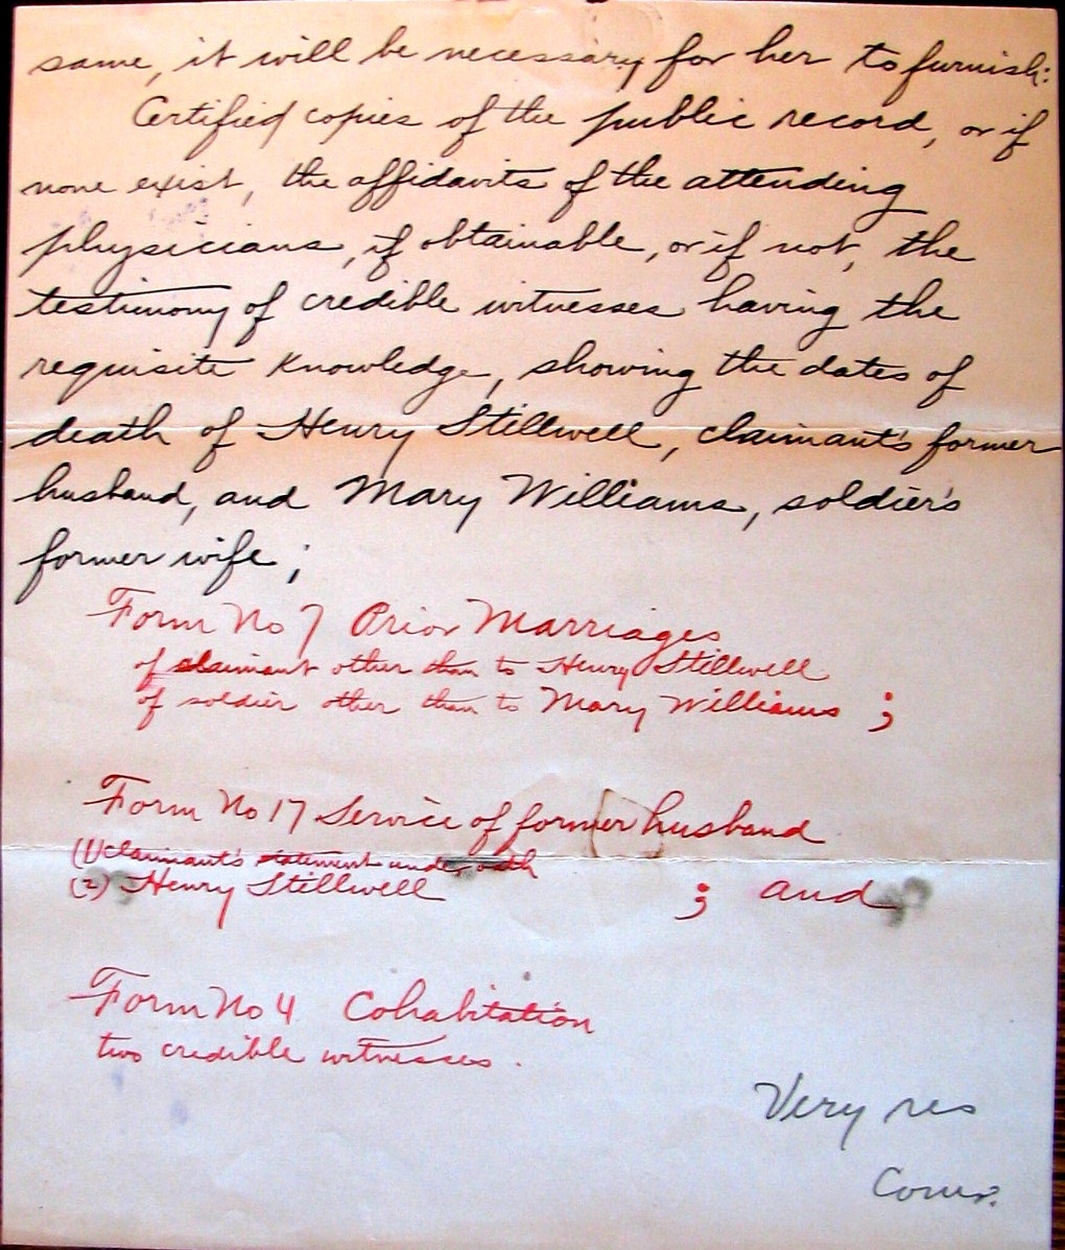 same, it will be necessary for her to furnish:
Certified copies of the public record, or if
none exist, the affidavits of the attending
physicians, if obtainable, or if not, the
testimony of credible witnesses having the
requisite knowledge, showing the dates of
death of Henry Stillwell, claimant's former
husband, and Mary Williams, soldier's
former wife;
Form No 7 Prior Marriages
of claimant other than to Henry Stillwell
of soldier other than to Mary Williams ;
Form No 17 Service of former husband
(1) claimant's statement under oath
(2) Henry Stillwell ; and
Form No 4 Cohabitation
two credible witnesses.
Very res
Comr.